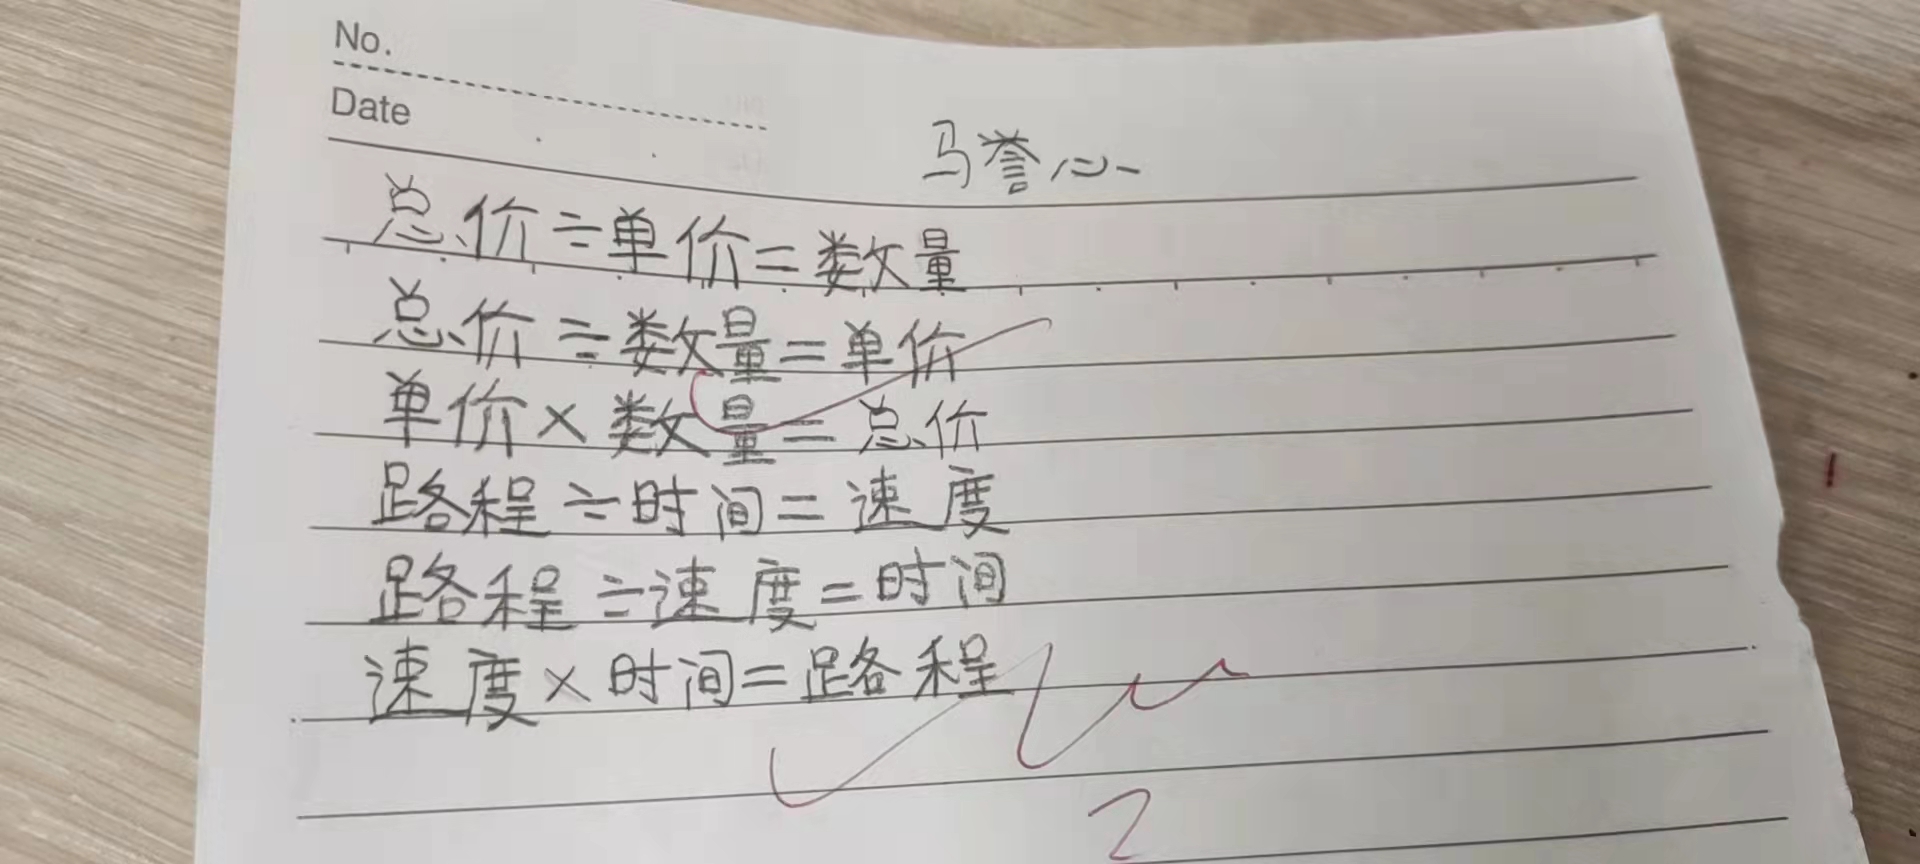 No.
Date
马誉心
总价÷单价=数量
总价÷数量=单价
单价×数量=总价
路程÷时间=速度
路程÷速度=时间
速度×时间=路程